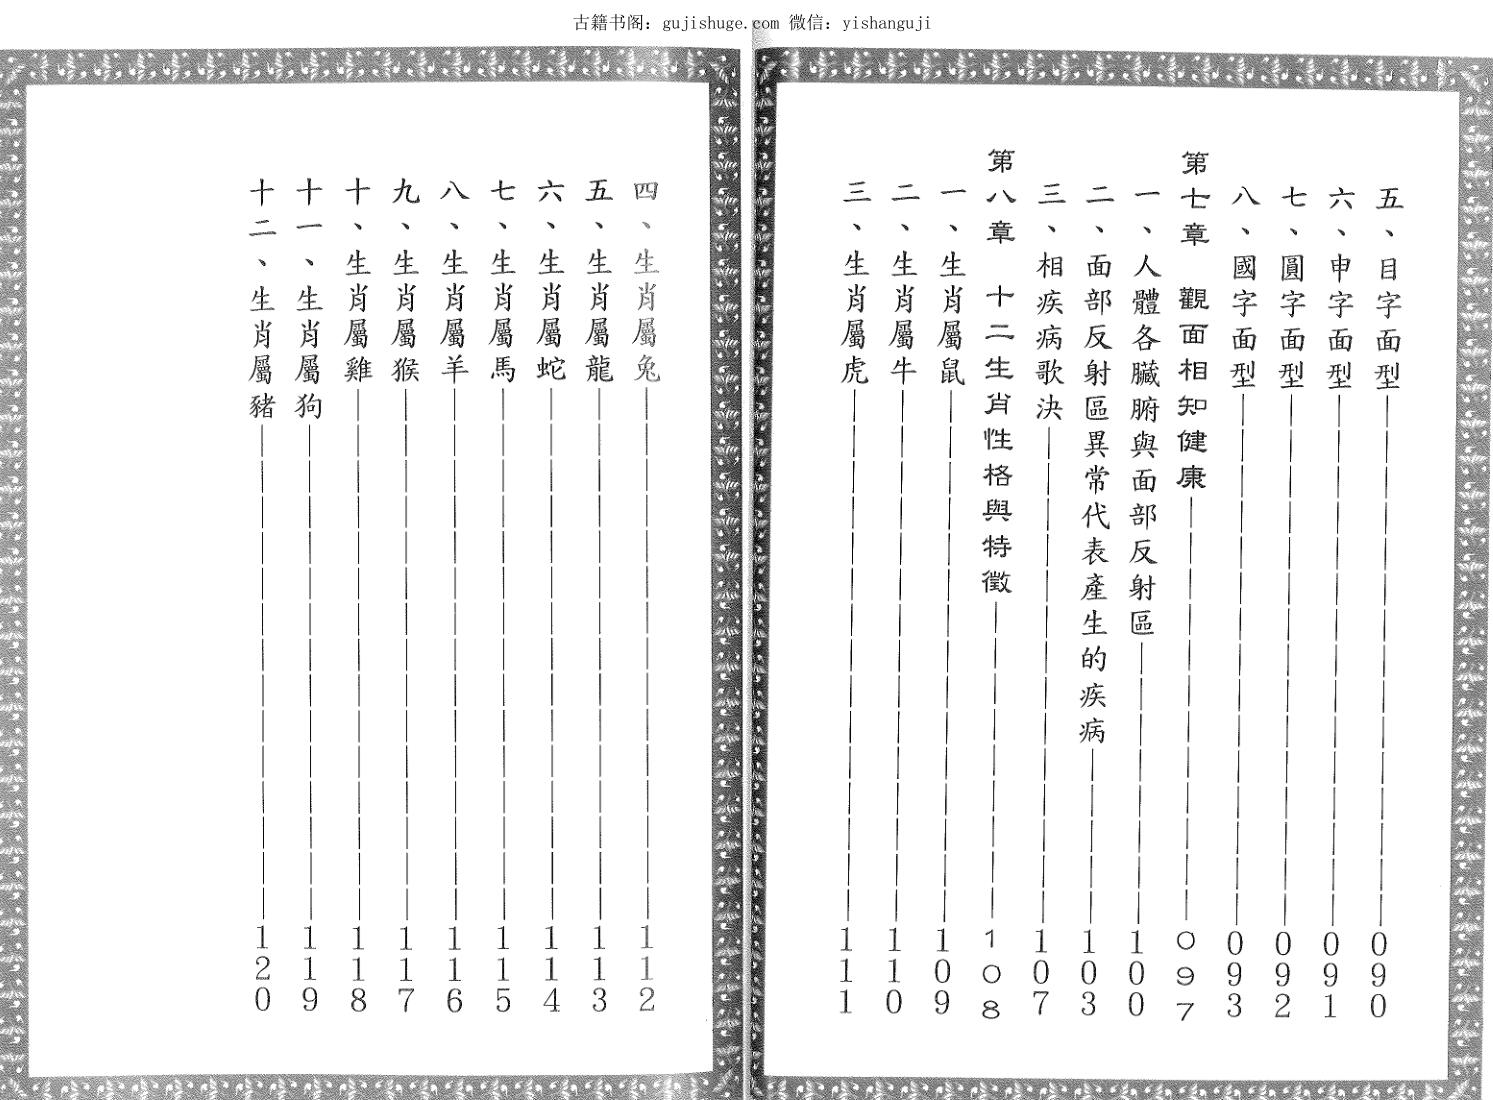 古籍书阁：gujishuge.com 微信：yishanguji
五、目字面型 090
六、申字面型 091
七、圓字面型 092
八、國字面型 093
第七章 觀面相知健康 097
一、人體各臟腑與面部反射區 100
二、面部反射區異常代表產生的疾病 103
三、相疾病歌決 107
第八章 十二生肖性格與特徵 108
一、生肖屬鼠 109
二、生肖屬牛 110
三、生肖屬虎 111
四、生肖屬兔 112
五、生肖屬龍 113
六、生肖屬蛇 114
七、生肖屬馬 115
八、生肖屬羊 116
九、生肖屬猴 117
十、生肖屬雞 118
十一、生肖屬狗 119
十二、生肖屬豬 120